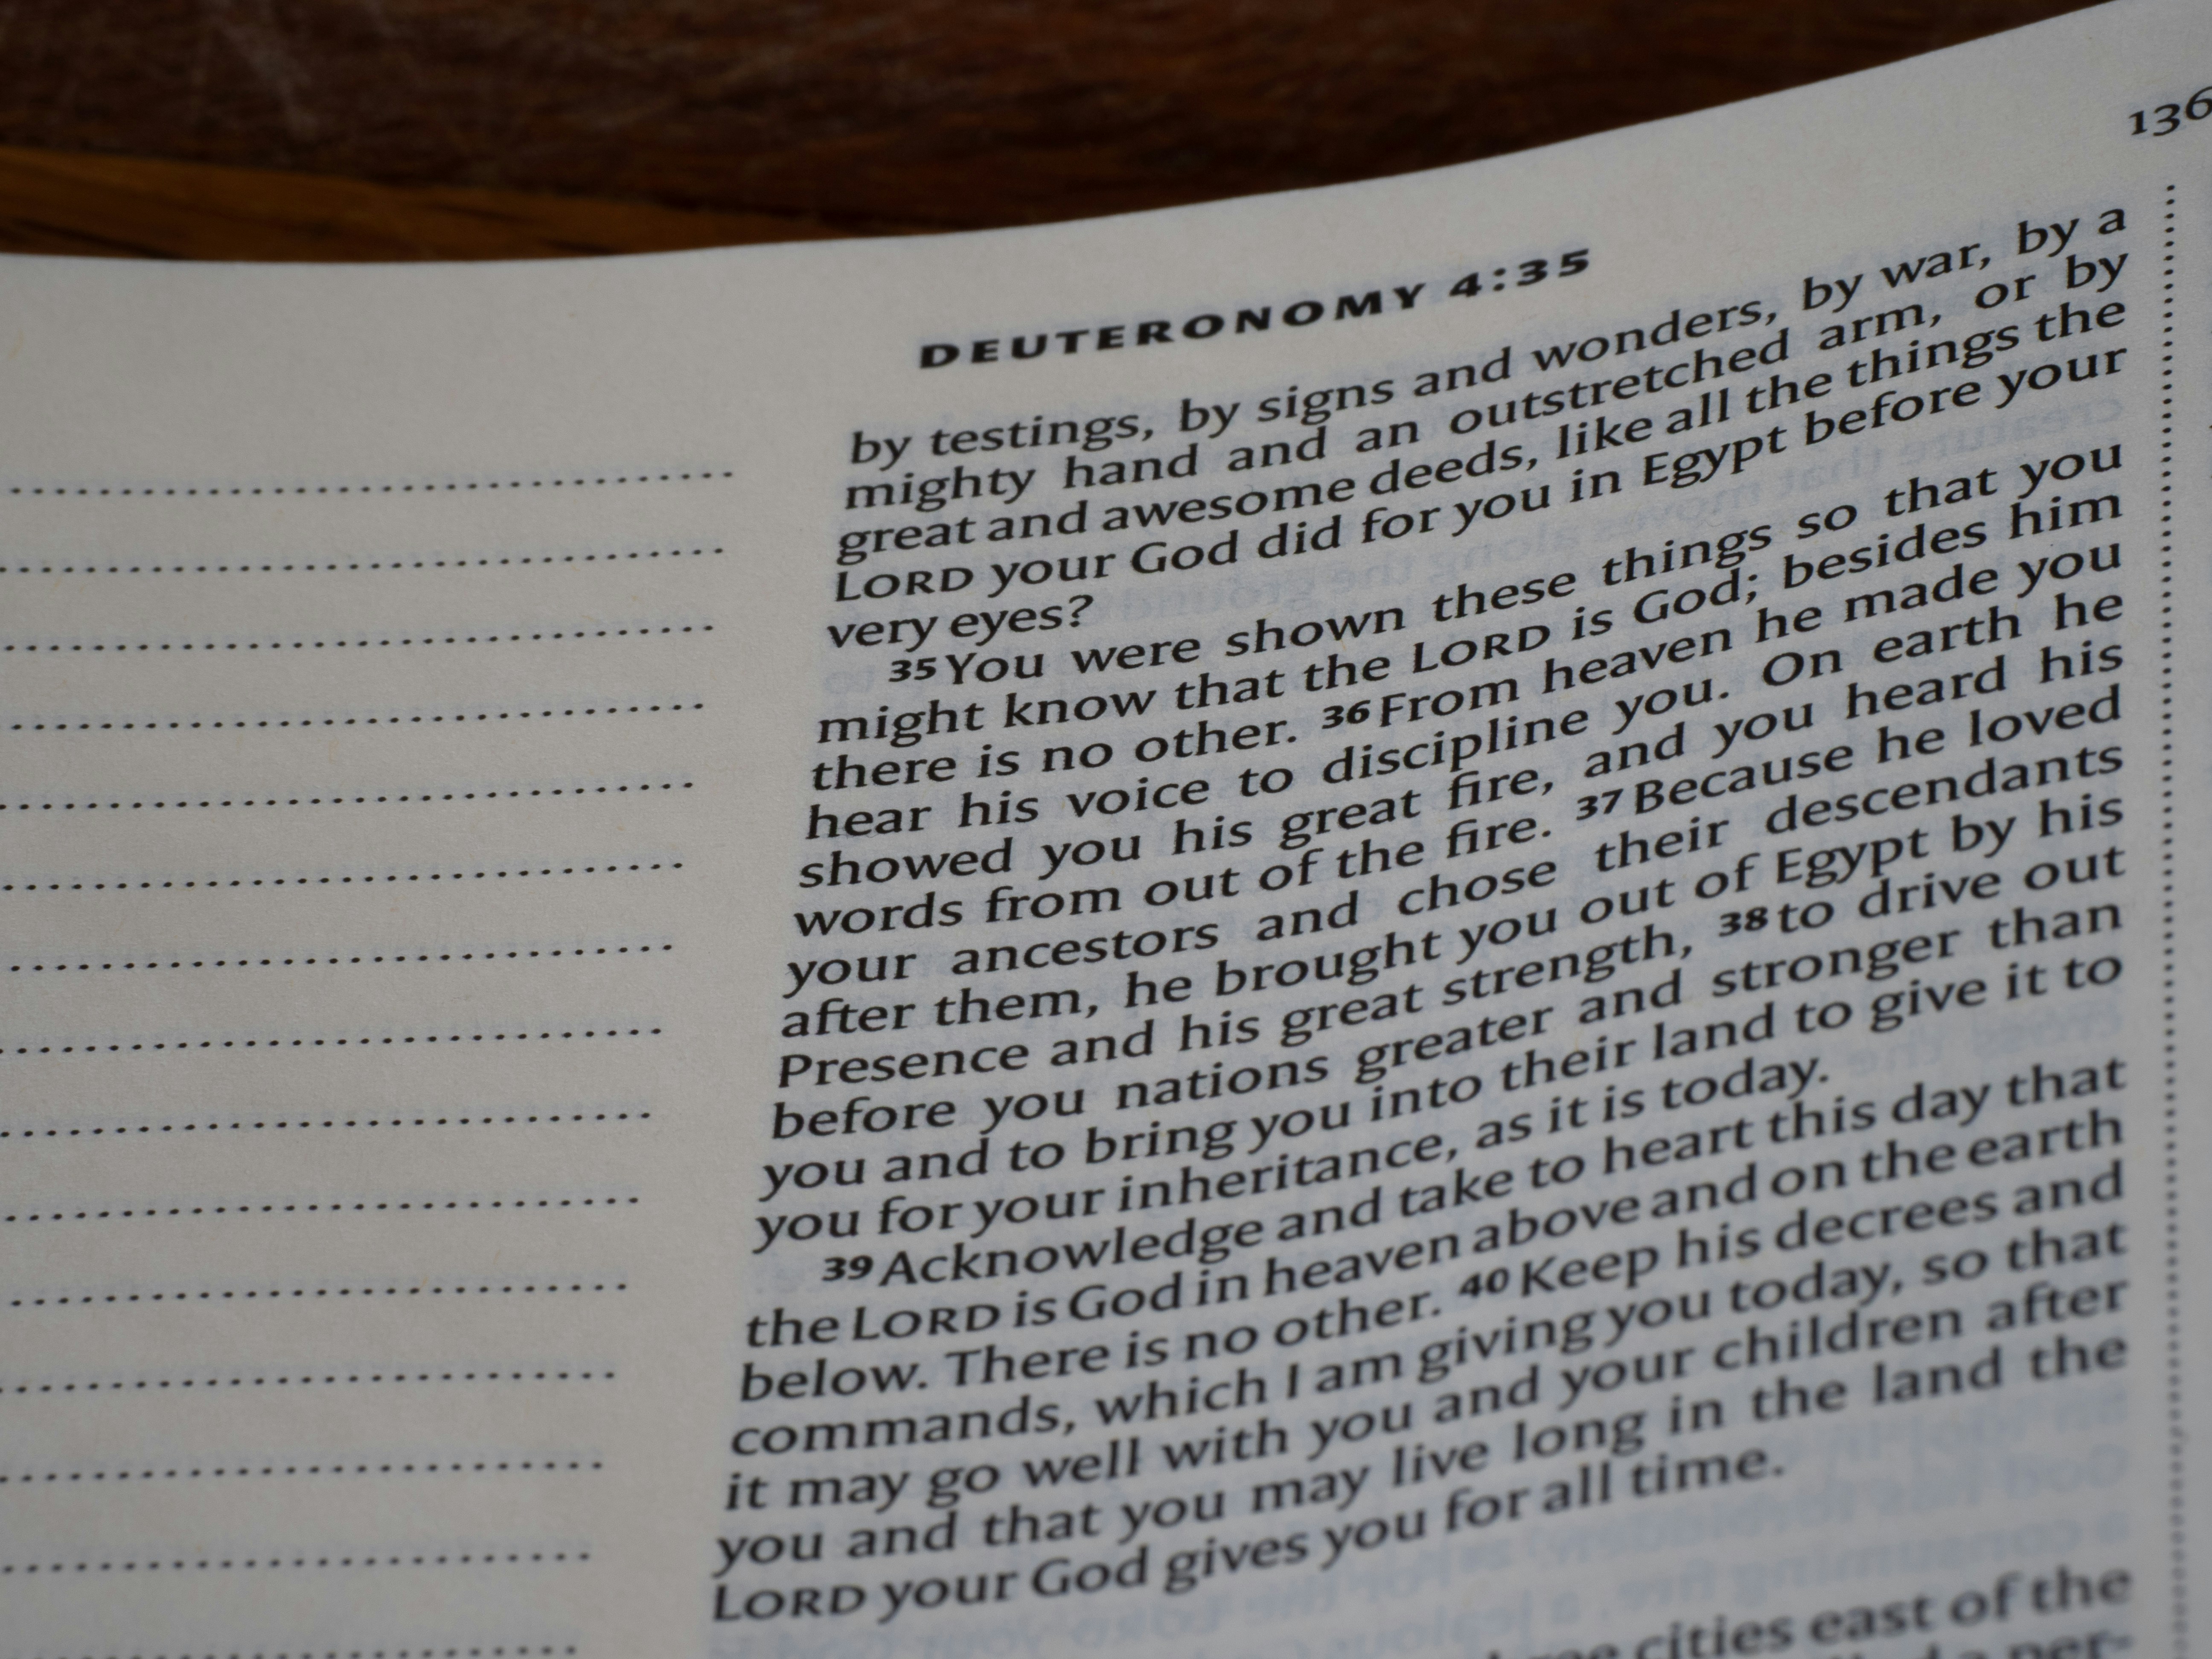 136
DEUTERONOMY 4:35
by testings, by signs and wonders, by war, by a
mighty hand and an outstretched arm, or by
great and awesome deeds, like all the things the
LORD your God did for you in Egypt before your
very eyes?
35 You were shown these things so that you
might know that the LORD is God; besides him
there is no other. 36 From heaven he made you
hear his voice to discipline you. On earth he
showed you his great fire, and you heard his
words from out of the fire. 37 Because he loved
your ancestors and chose their descendants
after them, he brought you out of Egypt by his
Presence and his great strength, 38 to drive out
before you nations greater and stronger than
you and to bring you into their land to give it to
you for your inheritance, as it is today.
39 Acknowledge and take to heart this day that
the LORD is God in heaven above and on the earth
below. There is no other. 40 Keep his decrees and
commands, which I am giving you today, so that
it may go well with you and your children after
you and that you may live long in the land the
LORD your God gives you for all time.
cities east of the
a per-